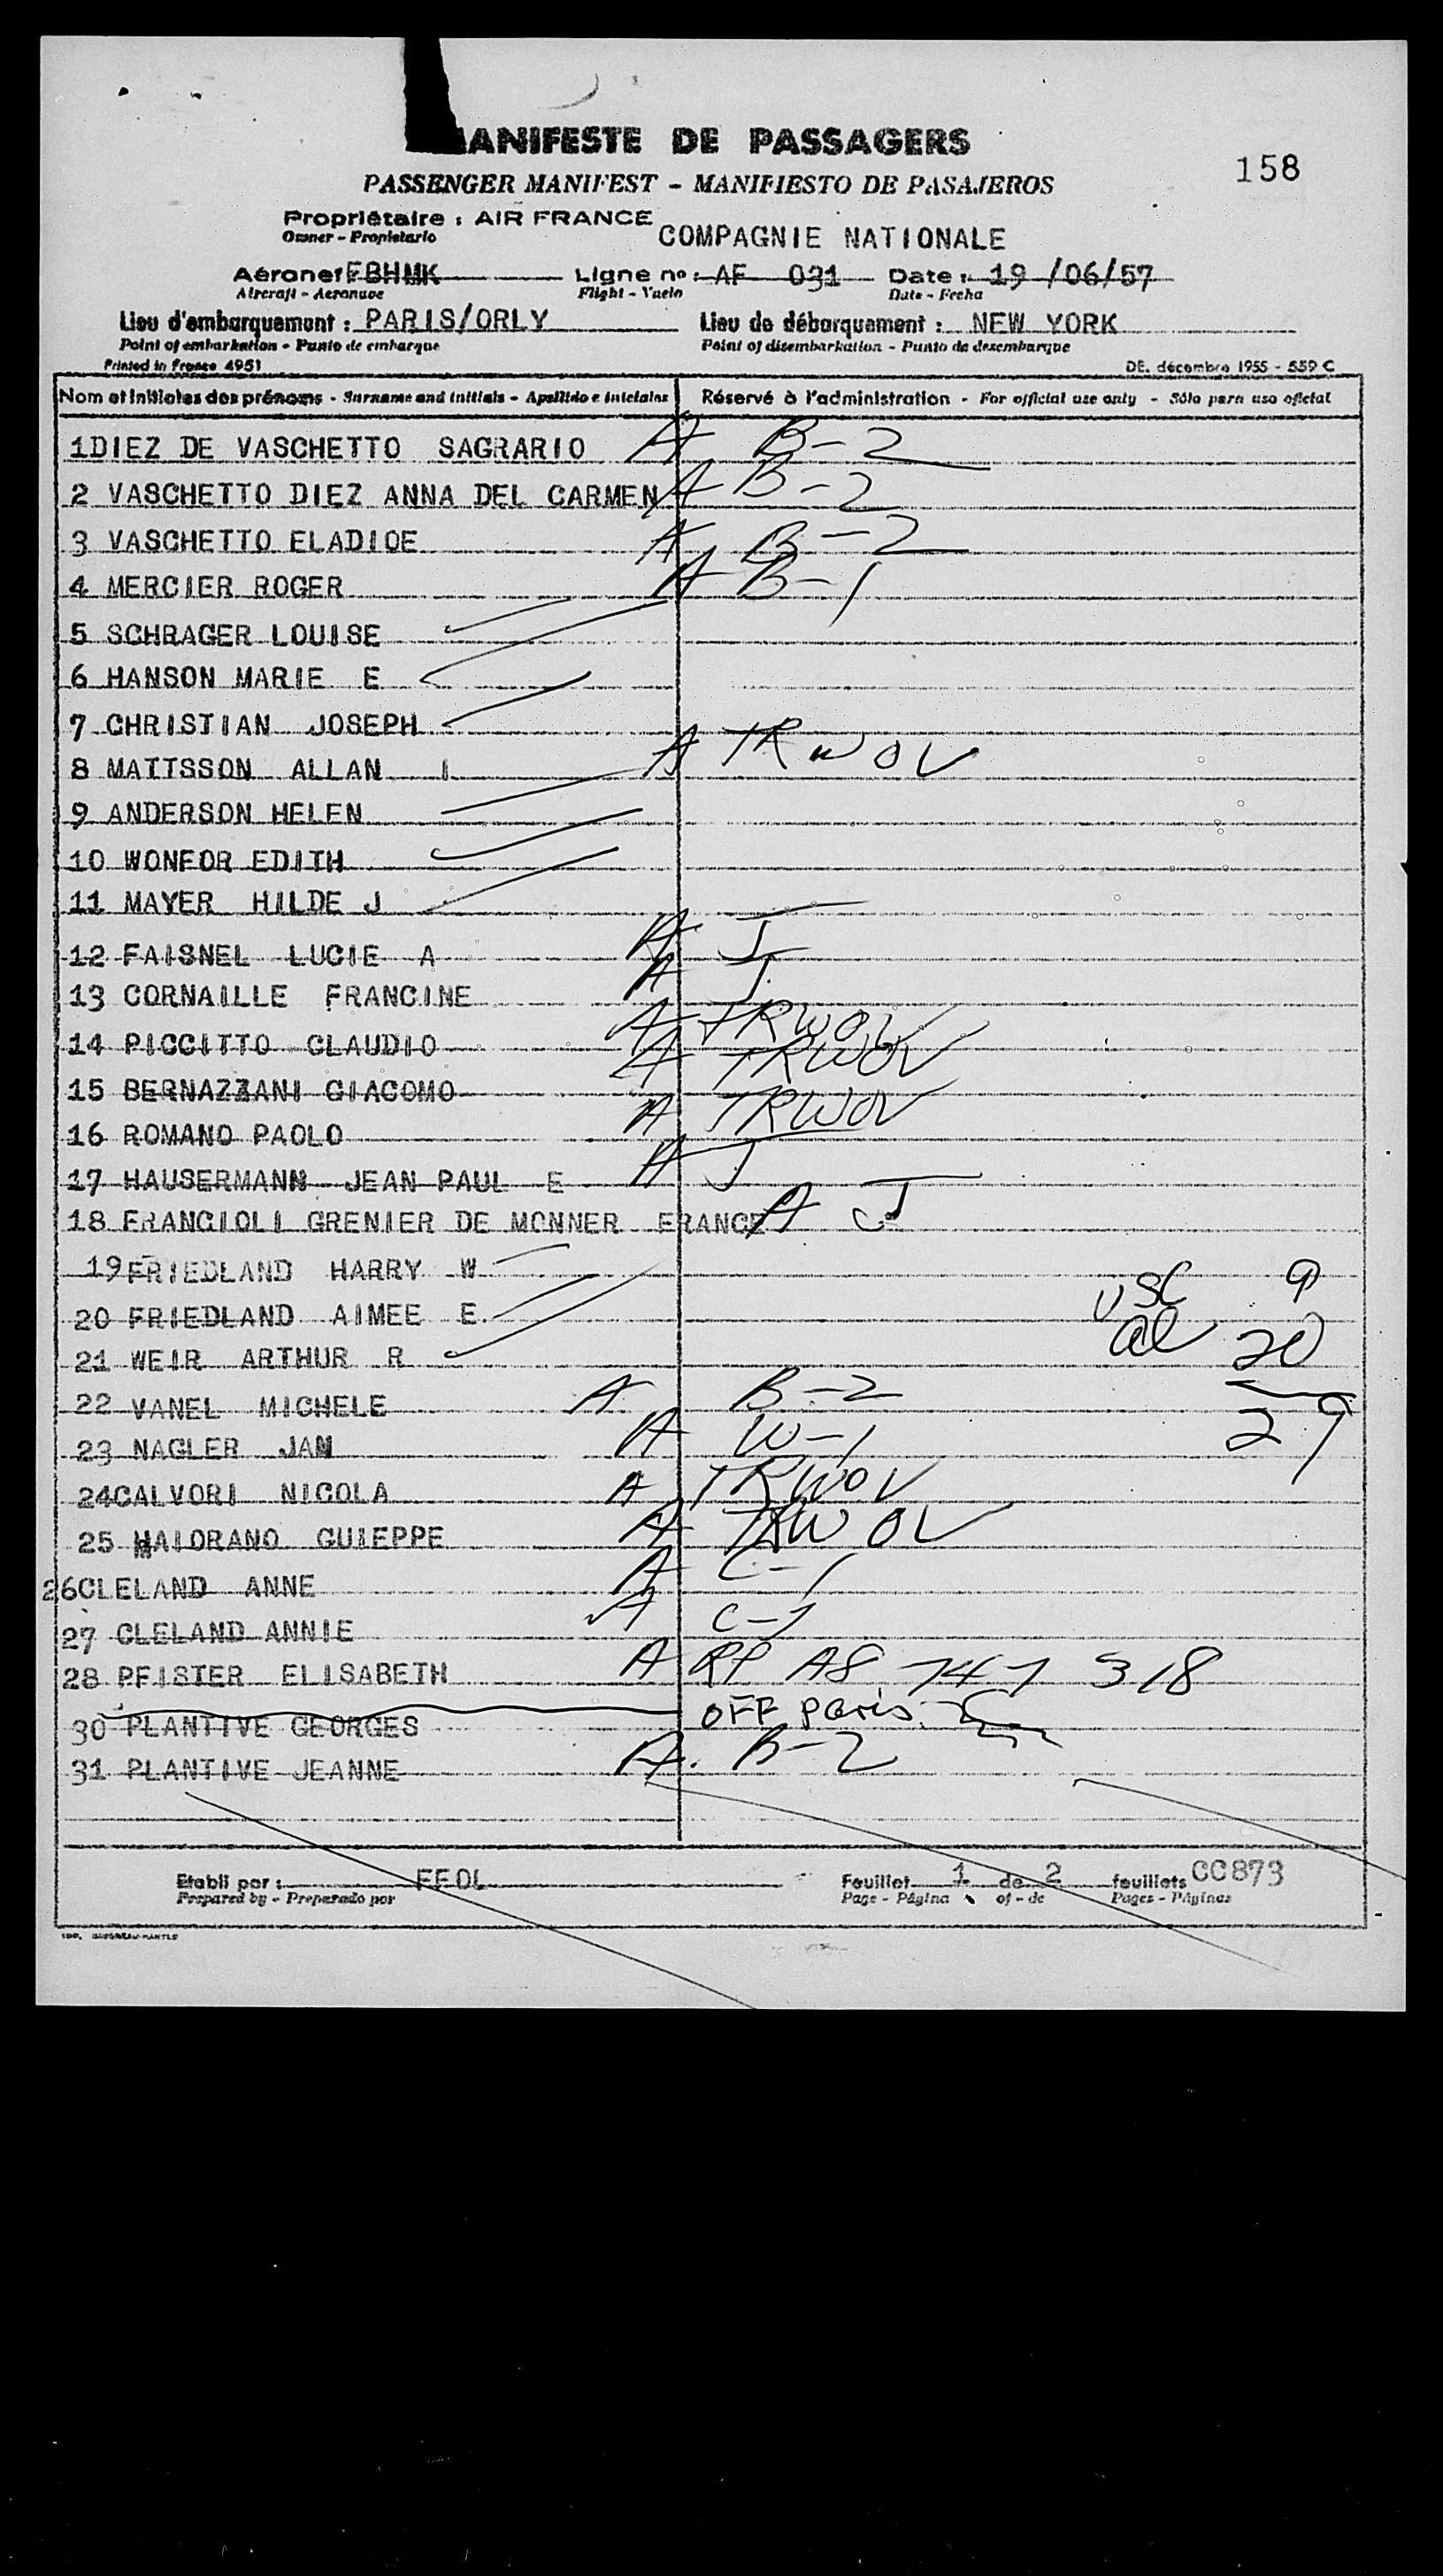 MANIFESTE DE PASSAGERS
158
PASSENGER MANIFEST - MANIFIESTO DE PASAJEROS
Propriétaire : AIR FRANCE
Owner - Propietario
COMPAGNIE NATIONALE
Aéronef FBHMK Ligne no : AF 031 Date : 19 /06/57
Aircraft - Aeronave Flight - Vuelo Date - Fecha
Lieu d'embarquement : PARIS/ORLY Lieu de débarquement : NEW YORK
Point of embarkation - Punto de embarque Point of disembarkation - Punto de desembarque
Printed in France 4951 DE. décembre 1955 - 559 C
Nom et initiales des prénoms - Surname and initials - Apellido e iniciales Réservé à l'administration - For official use only - Sólo para uso oficial
1 DIEZ DE VASCHETTO SAGRARIO A B-2
2 VASCHETTO DIEZ ANNA DEL CARMEN A B-2
3 VASCHETTO ELADIOE A B-2
4 MERCIER ROGER A B-1
5 SCHRAGER LOUISE
6 HANSON MARIE E
7 CHRISTIAN JOSEPH
8 MATTSSON ALLAN I A TRWOV
9 ANDERSON HELEN
10 WONFOR EDITH
11 MAYER HILDE J
12 FAISNEL LUCIE A A J
13 CORNAILLE FRANCINE A J
14 PICCITTO CLAUDIO A TRWOV
15 BERNAZZANI GIACOMO A TRWOV
16 ROMANO PAOLO A TRWOV
17 HAUSERMANN JEAN PAUL E A J
18 FRANCIOLI GRENIER DE MONNER FRANCE A J
19 FRIEDLAND HARRY W
USC 9
20 FRIEDLAND AIMEE E
al 20
21 WEIR ARTHUR R
22 VANEL MICHELE A B-2
29
23 NAGLER JAN A W-1
24 CALVORI NICOLA A TRWOV
25 MAIORANO GUIEPPE A TRWOV
26 CLELAND ANNE A C-1
27 CLELAND ANNIE A C-1
28 PFISTER ELISABETH A RP A8 747 318
30 PLANTIVE GEORGES OFF Paris
31 PLANTIVE JEANNE A. B-2
Etabli par : FFOL Feuillet 1 de 2 feuillets CC873
Prepared by - Preparado por Page - Página of - de Pages - Páginas